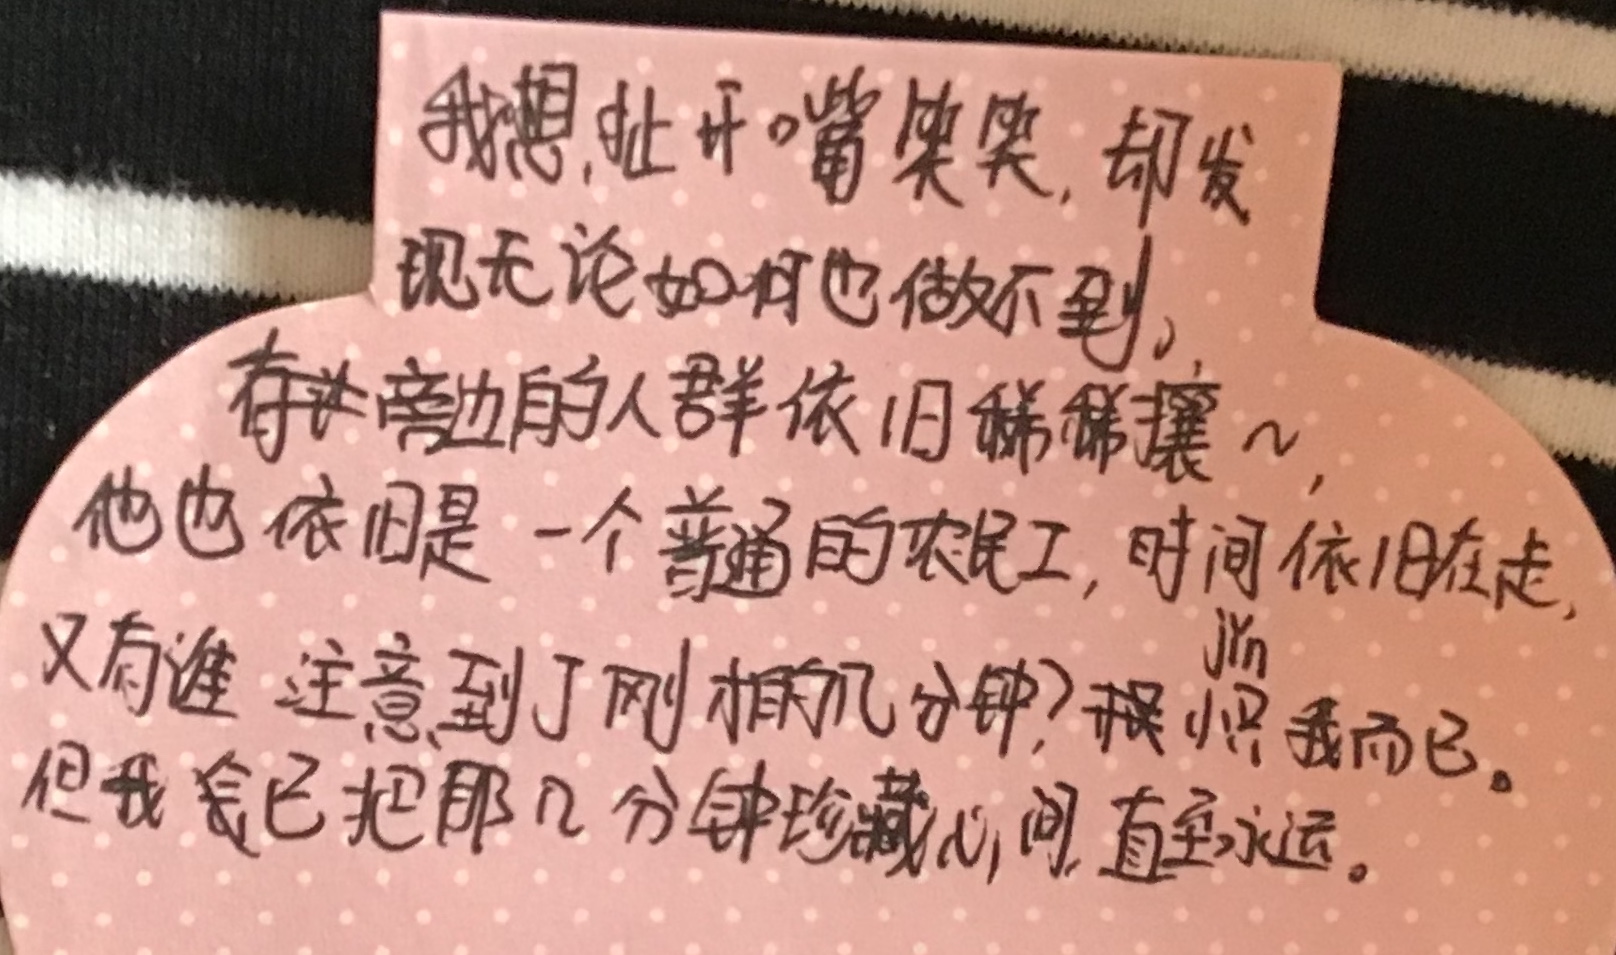 我想,扯开嘴笑笑,却发
现无论如何也做不到,
存在旁边的人群依旧稀稀攘~,
他也依旧是一个普通的农民工,时间依旧在走,
又有谁注意到了刚才的几分钟?jǐn 我而已。
但我会已把那几分钟珍藏心间,直至永远。